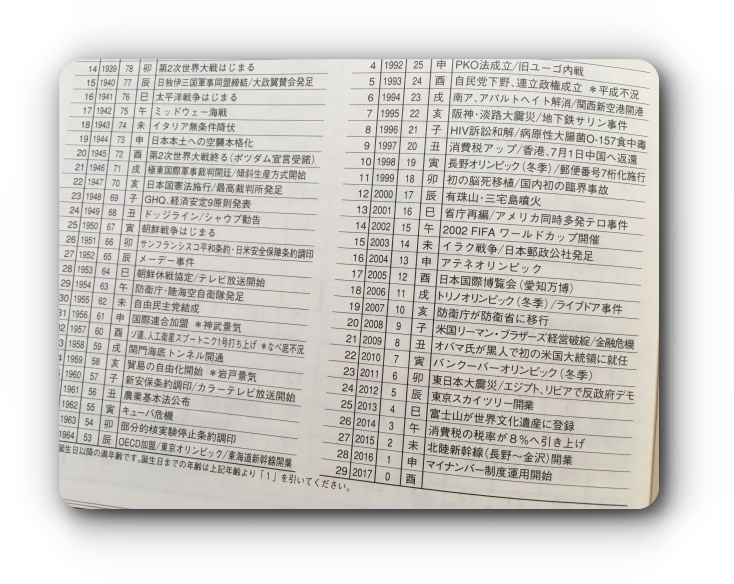 14 1939 78 卯 第2次世界大戦はじまる
15 1940 77 辰 日独伊三国軍事同盟締結/大政翼賛会発足
16 1941 76 巳 太平洋戦争はじまる
17 1942 75 午 ミッドウェー海戦
18 1943 74 未 イタリア無条件降伏
19 1944 73 申 日本本土への空襲本格化
20 1945 72 酉 第2次世界大戦終る(ポツダム宣言受諾)
21 1946 71 戌 極東国際軍事裁判開廷/傾斜生産方式開始
22 1947 70 亥 日本国憲法施行/最高裁判所発足
23 1948 69 子 GHQ、経済安定9原則発表
24 1949 68 丑 ドッジライン/シャウプ勧告
25 1950 67 寅 朝鮮戦争はじまる
26 1951 66 卯 サンフランシスコ平和条約・日米安全保障条約調印
27 1952 65 辰 メーデー事件
28 1953 64 巳 朝鮮休戦協定/テレビ放送開始
29 1954 63 午 防衛庁・陸海空自衛隊発足
30 1955 62 未 自由民主党結成
31 1956 61 申 国際連合加盟 *神武景気
32 1957 60 酉 ソ連、人工衛星スプートニク1号打ち上げ *なべ底不況
1958 59 戌 関門海底トンネル開通
1959 58 亥 貿易の自由化開始 *岩戸景気
1960 57 子 新安保条約調印/カラーテレビ放送開始
1961 56 丑 農業基本法公布
1962 55 寅 キューバ危機
1963 54 卯 部分的核実験停止条約調印
1964 53 辰 OECD加盟/東京オリンピック/東海道新幹線開業
誕生日以降の満年齢です。誕生日までの年齢は上記年齢より「1」を引いてください。
4 1992 25 申 PKO法成立/旧ユーゴ内戦
5 1993 24 酉 自民党下野、連立政権成立 *平成不況
6 1994 23 戌 南ア、アパルトヘイト解消/関西新空港開港
7 1995 22 亥 阪神・淡路大震災/地下鉄サリン事件
8 1996 21 子 HIV訴訟和解/病原性大腸菌O-157食中毒
9 1997 20 丑 消費税アップ/香港、7月1日中国へ返還
10 1998 19 寅 長野オリンピック(冬季)/郵便番号7桁化施行
11 1999 18 卯 初の脳死移植/国内初の臨界事故
12 2000 17 辰 有珠山・三宅島噴火
13 2001 16 巳 省庁再編/アメリカ同時多発テロ事件
14 2002 15 午 2002 FIFA ワールドカップ開催
15 2003 14 未 イラク戦争/日本郵政公社発足
16 2004 13 申 アテネオリンピック
17 2005 12 酉 日本国際博覧会(愛知万博)
18 2006 11 戌 トリノオリンピック(冬季)/ライブドア事件
19 2007 10 亥 防衛庁が防衛省に移行
20 2008 9 子 米国リーマン・ブラザーズ経営破綻/金融危機
21 2009 8 丑 オバマ氏が黒人で初の米国大統領に就任
22 2010 7 寅 バンクーバーオリンピック(冬季)
23 2011 6 卯 東日本大震災/エジプト、リビアで反政府デモ
24 2012 5 辰 東京スカイツリー開業
25 2013 4 巳 富士山が世界文化遺産に登録
26 2014 3 午 消費税の税率が8%へ引き上げ
27 2015 2 未 北陸新幹線(長野~金沢)開業
28 2016 1 申 マイナンバー制度運用開始
29 2017 0 酉